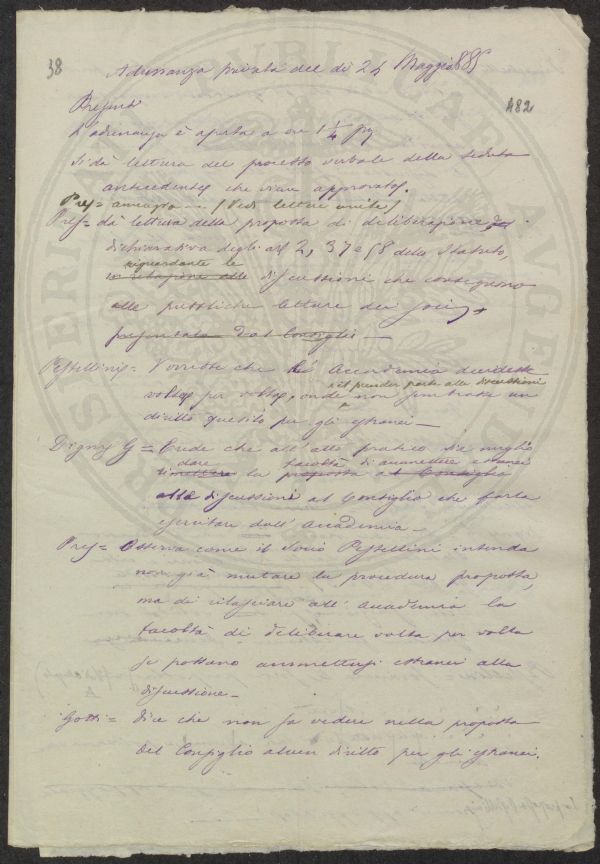 38
Adunanza privata del dì 24 Maggio 1885
482
Presenti
L'adunanza è aperta a ore 1 1/4 pom
Si dà lettura del processo verbale della seduta
antecedente che viene approvato.
Pres = annunzia ... (Vedi lettere unite)
Pres = dà lettura della proposta di deliberazione
dichiarativa degli art 2, 37 e 58 dello Statuto,
riguardante le
in relazione alle discussioni che conseguono
alle pubbliche letture dei Soci,
presentata dal Consiglio —
Pestellini = Vorrebbe che l'Accademia decidesse
volta per volta, onde non sembrasse un
il prender parte alle discussioni
diritto quesito per gli estranei —
Digny G = Crede che all'atto pratico sia meglio
dare facoltà di ammettere estranei
rimettere la proposta al Consiglio
alle discussioni al Consiglio che farla
esercitare dall'Accademia —
Pres = Osserva come il Socio Pestellini intenda
non già mutare la procedura proposta,
ma di rilasciare all'Accademia la
facoltà di deliberare volta per volta
se possano ammettersi estranei alla
discussione —
Gotti = dice che non sa vedere nella proposta
del Consiglio alcun diritto per gli estranei.